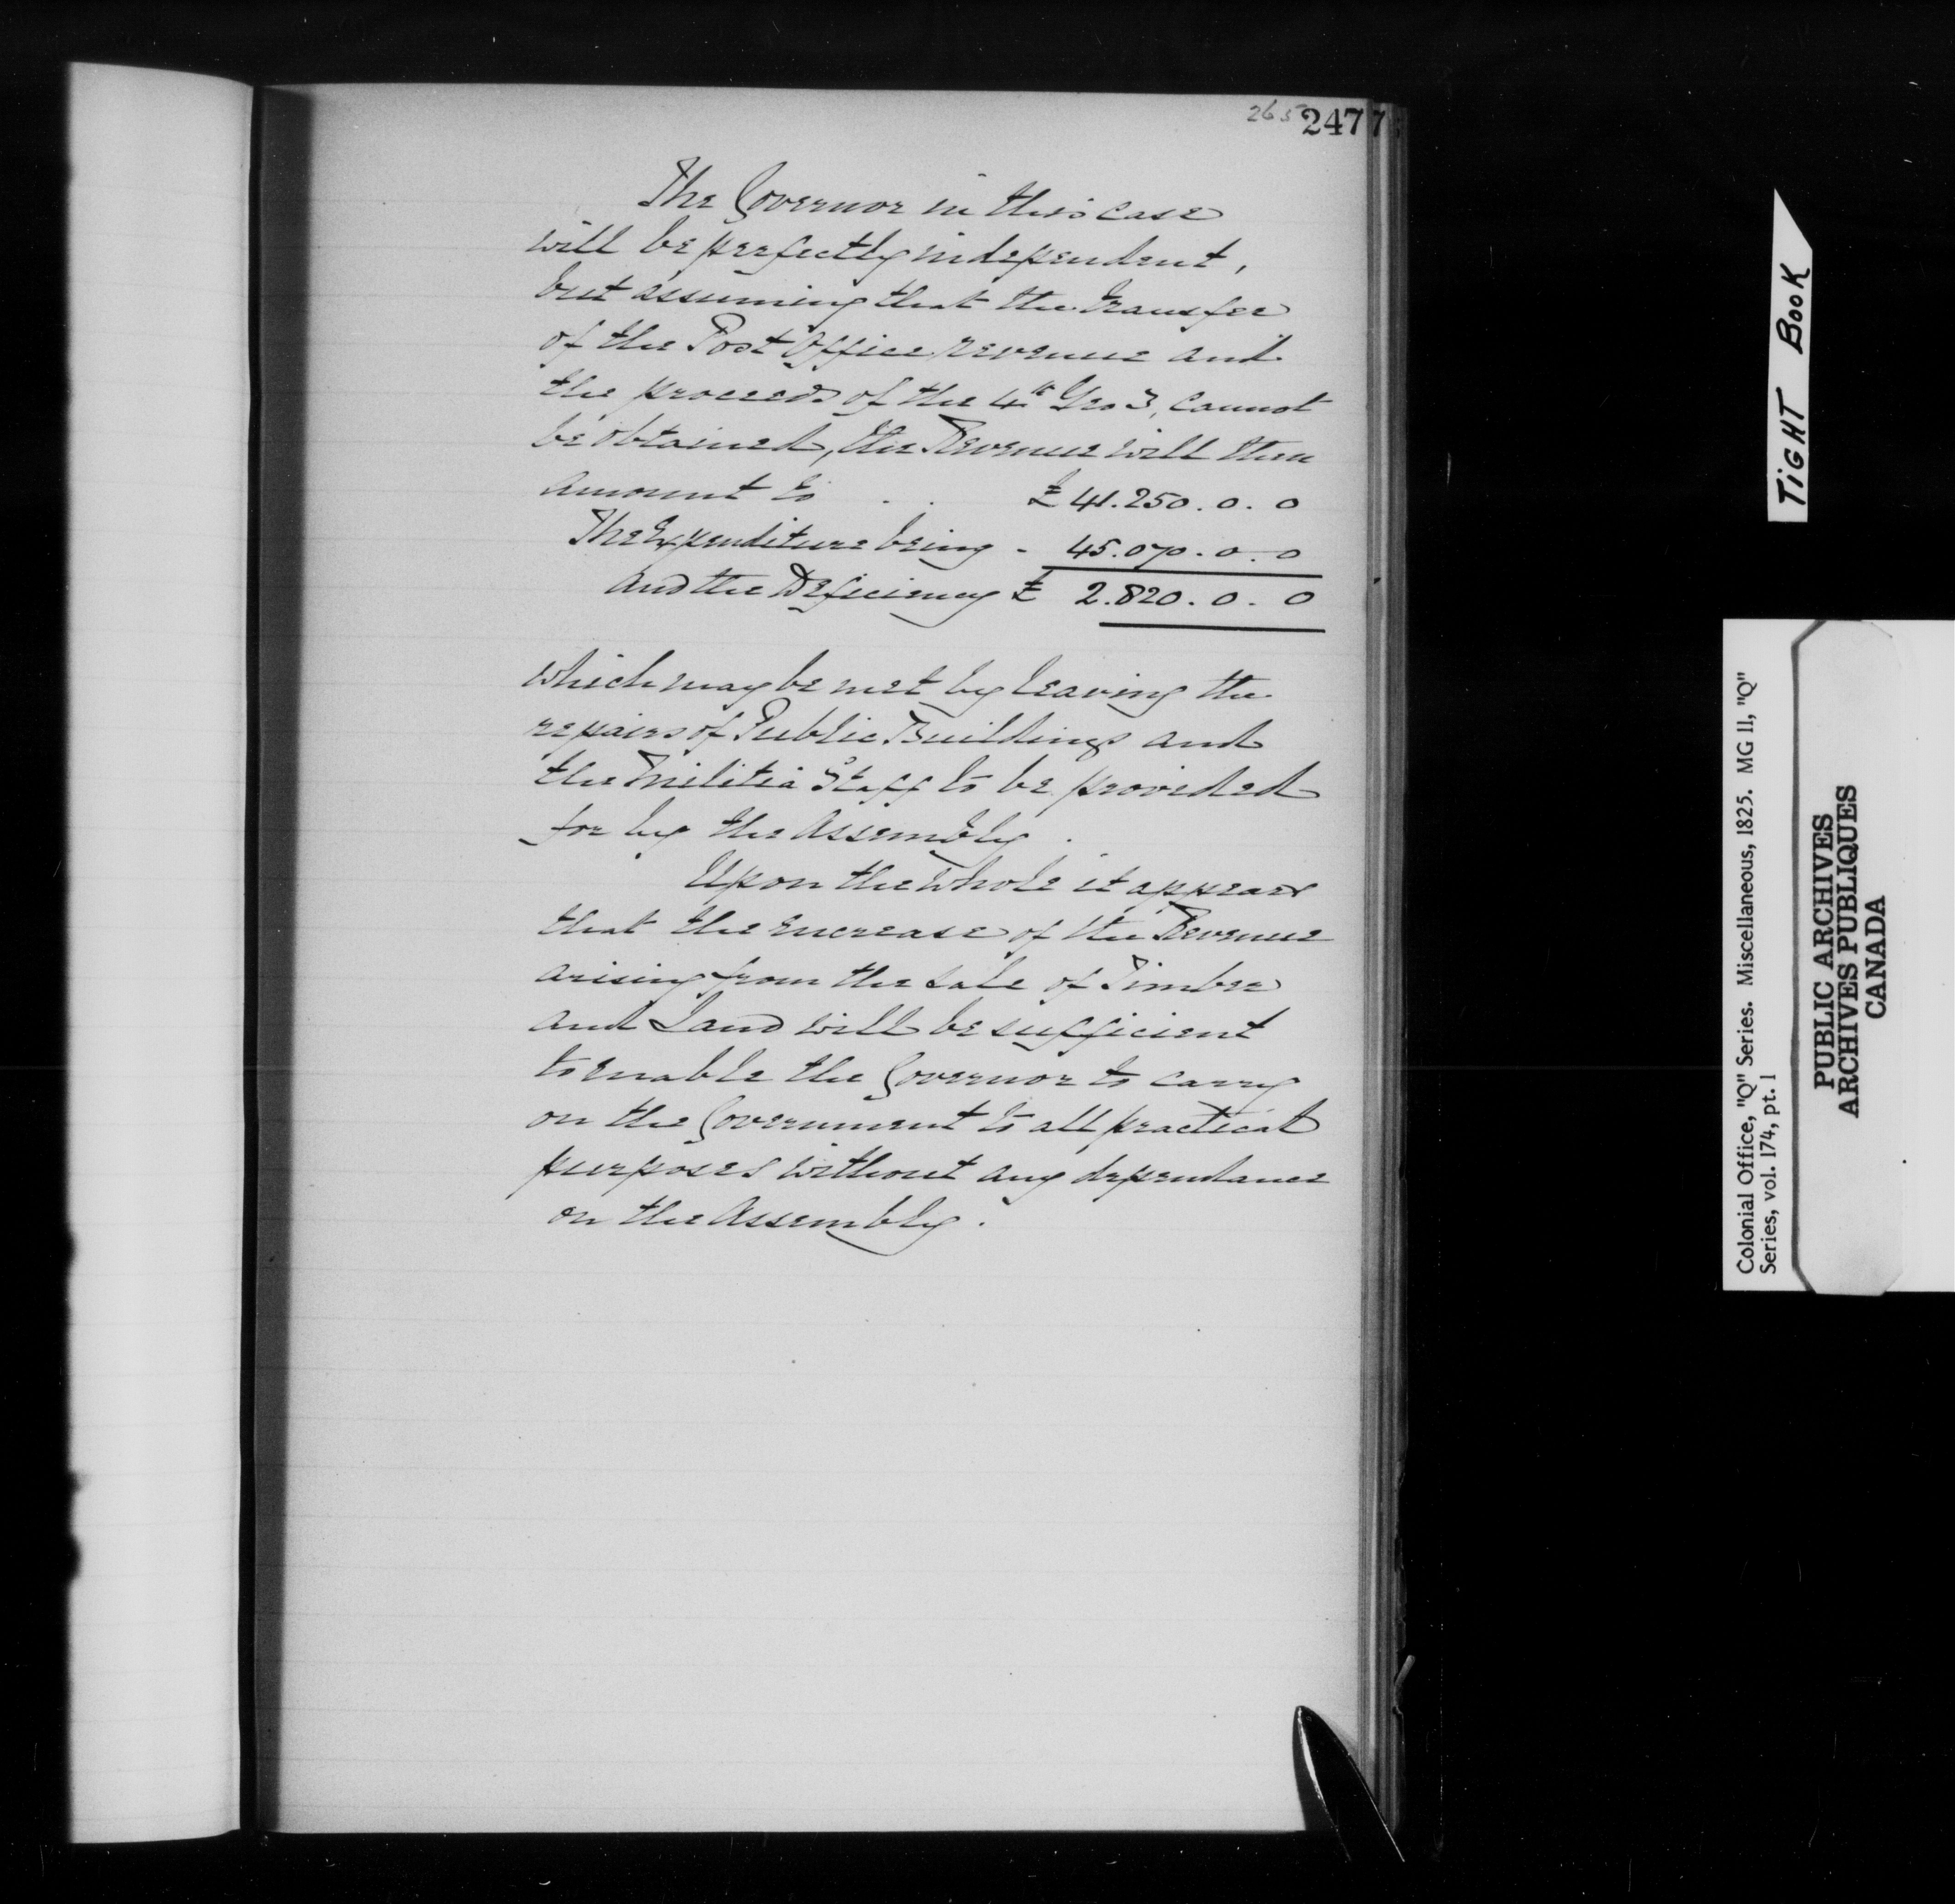 265 247
The Governor in this case
will be perfectly independent,
but assuming that the transfer
of the Post Office revenue and
the proceeds of the 4th Geo 3, cannot
be obtained, the Revenue will then
amount to . . £ 41.250. 0. 0
The Expenditure being - 45.070. 0. 0
and the Deficiency £ 2.820. 0. 0
which may be met by leaving the
repairs of Public Buildings and
the Militia Staff to be provided
for by the Assembly.
Upon the whole it appears
that the encrease of the Revenue
arising from the sale of Timber
and Land will be sufficient
to enable the Governor to carry
on the Government to all practical
purposes without any dependance
on the Assembly.
TIGHT BOOK
Colonial Office, "Q" Series. Miscellaneous, 1825. MG 11, "Q"
Series, vol. 174, pt. 1
PUBLIC ARCHIVES
ARCHIVES PUBLIQUES
CANADA